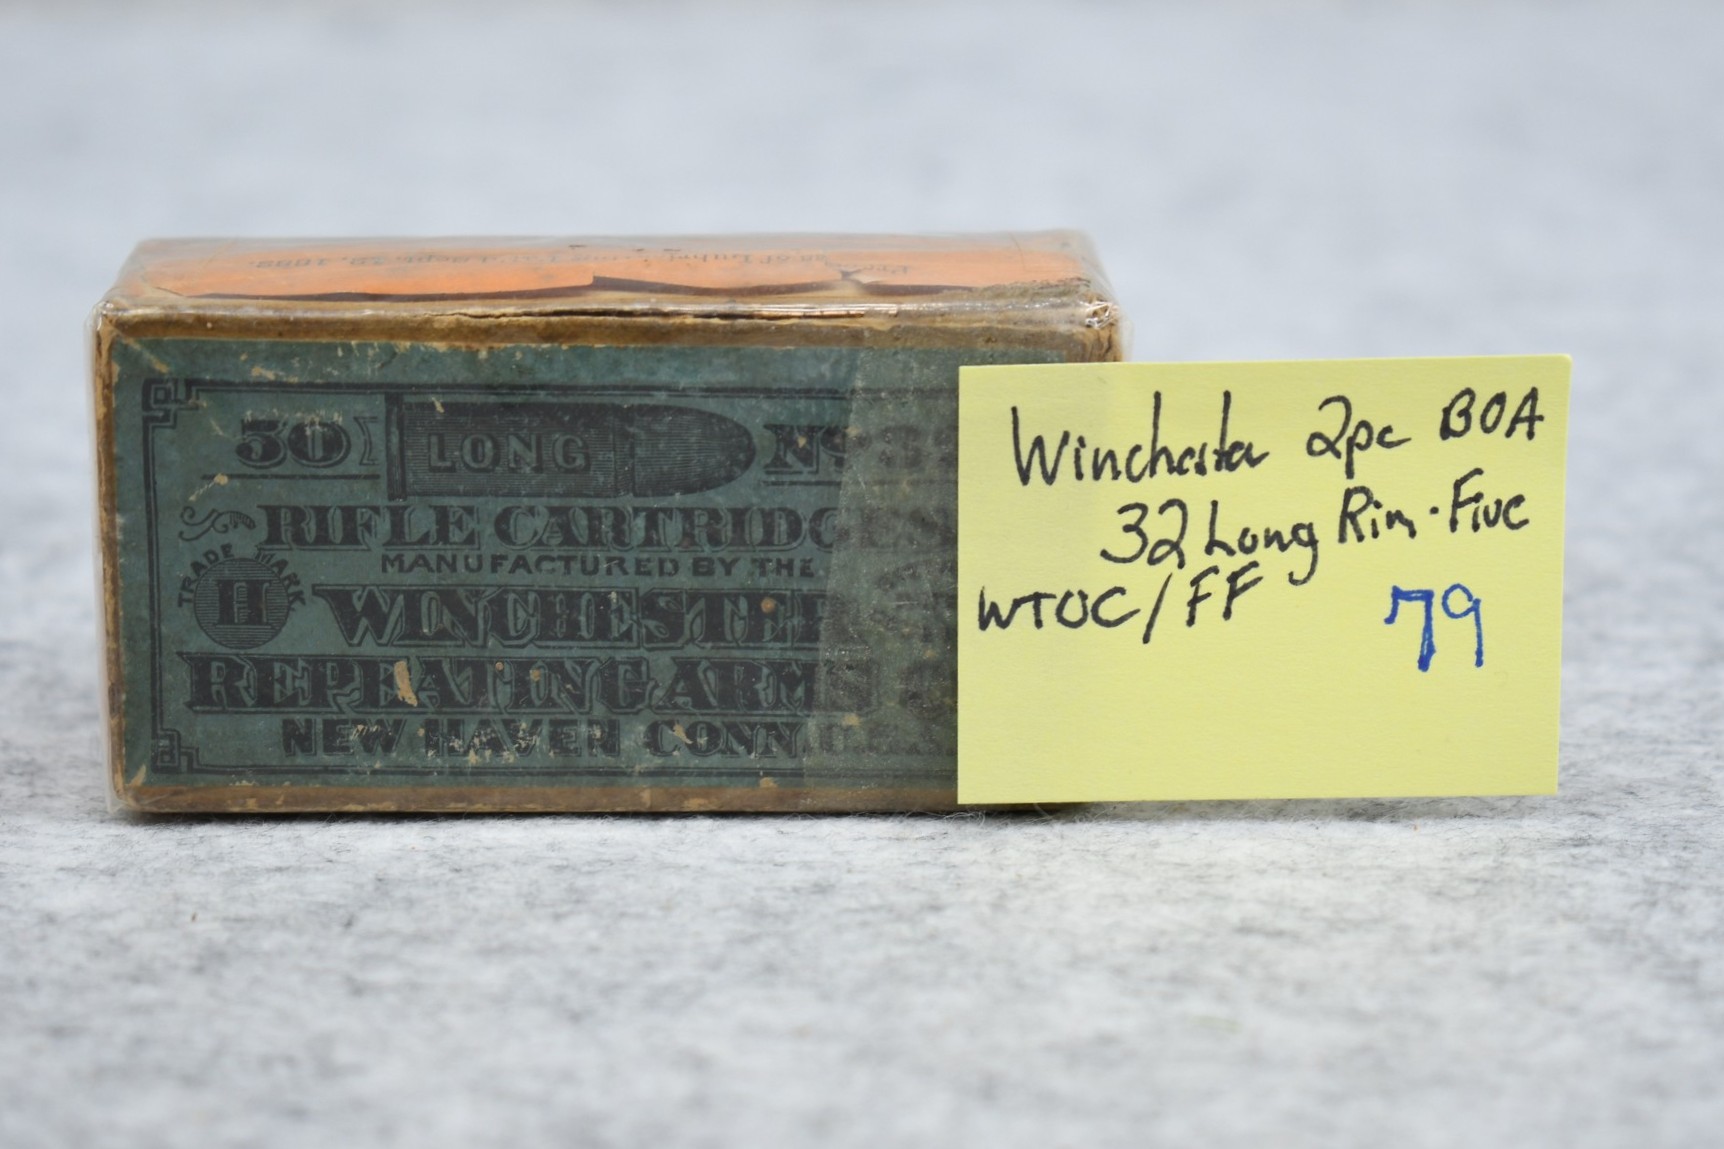 50
LONG
No
RIFLE CARTRIDGES
MANUFACTURED BY THE
TRADE MARK
H
WINCHESTER
REPEATING ARMS
NEW HAVEN CONN.
Winchester 2pc BOA
32 Long Rim-Five
WTOC/FF
79